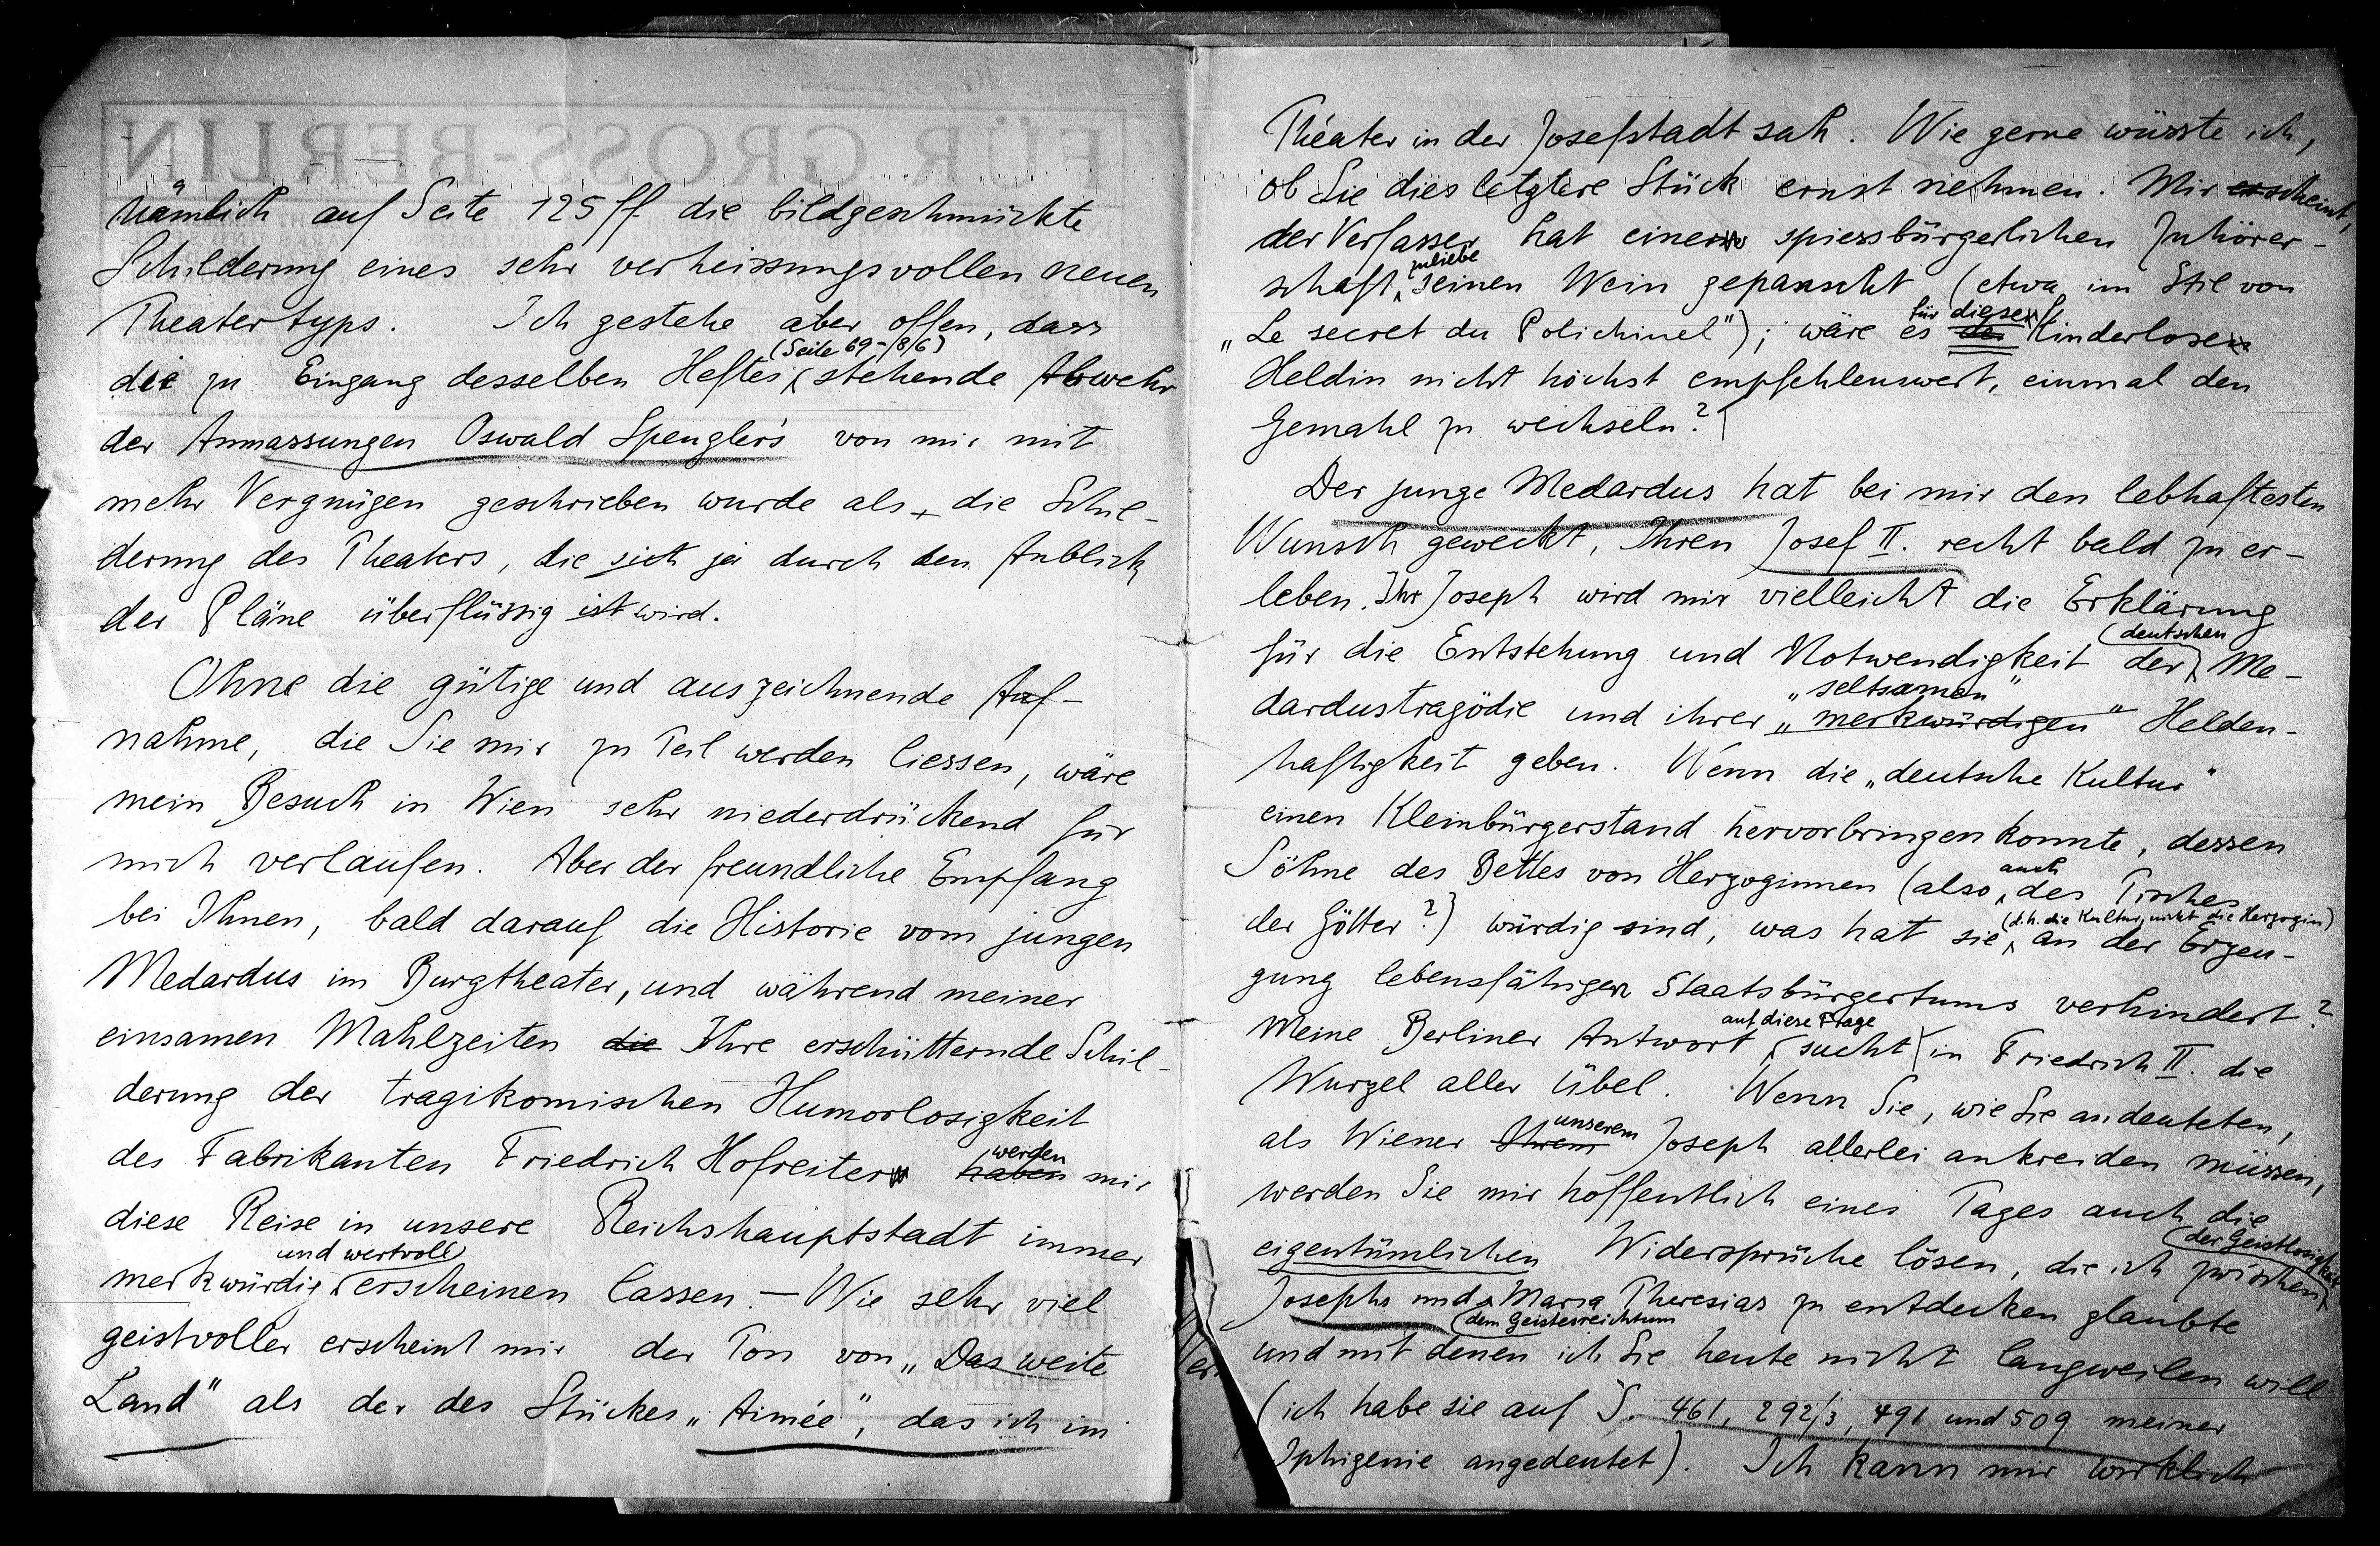 FÜR GROSS-BERLIN
nämlich auf Seite 125 ff. die bildgeschmückte
Schilderung eines sehr verheissungsvollen neuen
Theatertyps. Ich gestehe aber offen, dass
(Seite 69-/8/6)
die zu Eingang desselben Heftes stehende Abwehr
der Anmassungen Oswald Spengler's von mir mit
mehr Vergnügen geschrieben wurde als die Schil-
derung des Theaters, die sich ja durch den Anblick
der Pläne überflüssig ist wird.
Ohne die gütige und auszeichnende Auf-
nahme, die Sie mir zu Teil werden liessen, wäre
mein Besuch in Wien sehr niederdrückend für
mich verlaufen. Aber der freundliche Empfang
bei Ihnen, bald darauf die Historie vom jungen
Medardus im Burgtheater, und während meiner
einsamen Mahlzeiten die Ihre erschütternde Schil-
derung der tragikomischen Humorlosigkeit
werden
des Fabrikanten Friedrich Hofreiter haben mir
diese Reise in unsere Reichshauptstadt immer
und wertvoll
merkwürdig erscheinen lassen. — Wie sehr viel
geistvoller erscheint mir der Ton von „Das weite
Land" als der des Stückes „Aimée", das ich im
Theater in der Josefstadt sah. Wie gerne wüsste ich,
ob Sie dies letztere Stück ernst nehmen. Mir erscheint,
der Verfasser hat einer spiessbürgerlichen Zuhörer-
zuliebe
schaft seinen Wein gepanscht (etwa im Stil von
für diese
„Le secret du Polichinel"); wäre es der kinderlosen
Heldin nicht höchst empfehlenswert, einmal den
Gemahl zu wechseln?
Der junge Medardus hat bei mir den lebhaftesten
Wunsch geweckt, Ihren Josef II. recht bald zu er-
leben. Ihr Joseph wird mir vielleicht die Erklärung
(deutschen
für die Entstehung und Notwendigkeit der Me-
„seltsamen"
dardustragödie und ihrer „merkwürdigen" Helden-
haftigkeit geben. Wenn die „deutsche Kultur"
einen Kleinbürgerstand hervorbringen konnte, dessen
auch
Söhne des Bettes von Herzoginnen (also des Tisches
(d.h. die Kultur, nicht die Herzogin)
der Götter?) würdig sind, was hat sie an der Erzeu-
gung lebensfähigen Staatsbürgertums verhindert?
auf diese Frage
Meine Berliner Antwort sucht in Friedrich II. die
Wurzel aller Übel. Wenn Sie, wie Sie andeuteten,
unserem
als Wiener Ihrem Joseph allerlei ankreiden müssen,
werden Sie mir hoffentlich eines Tages auch die
(der Geistlosigkeit
eigentümlichen Widersprüche lösen, die ich zwischen
Josephs und Maria Theresias zu entdecken glaubte
(dem Geistesreichtum
und mit denen ich Sie heute nicht langweilen will
(ich habe sie auf S. 461, 292/3, 491 und 509 meiner
Iphigenie angedeutet). Ich kann mir wirklich